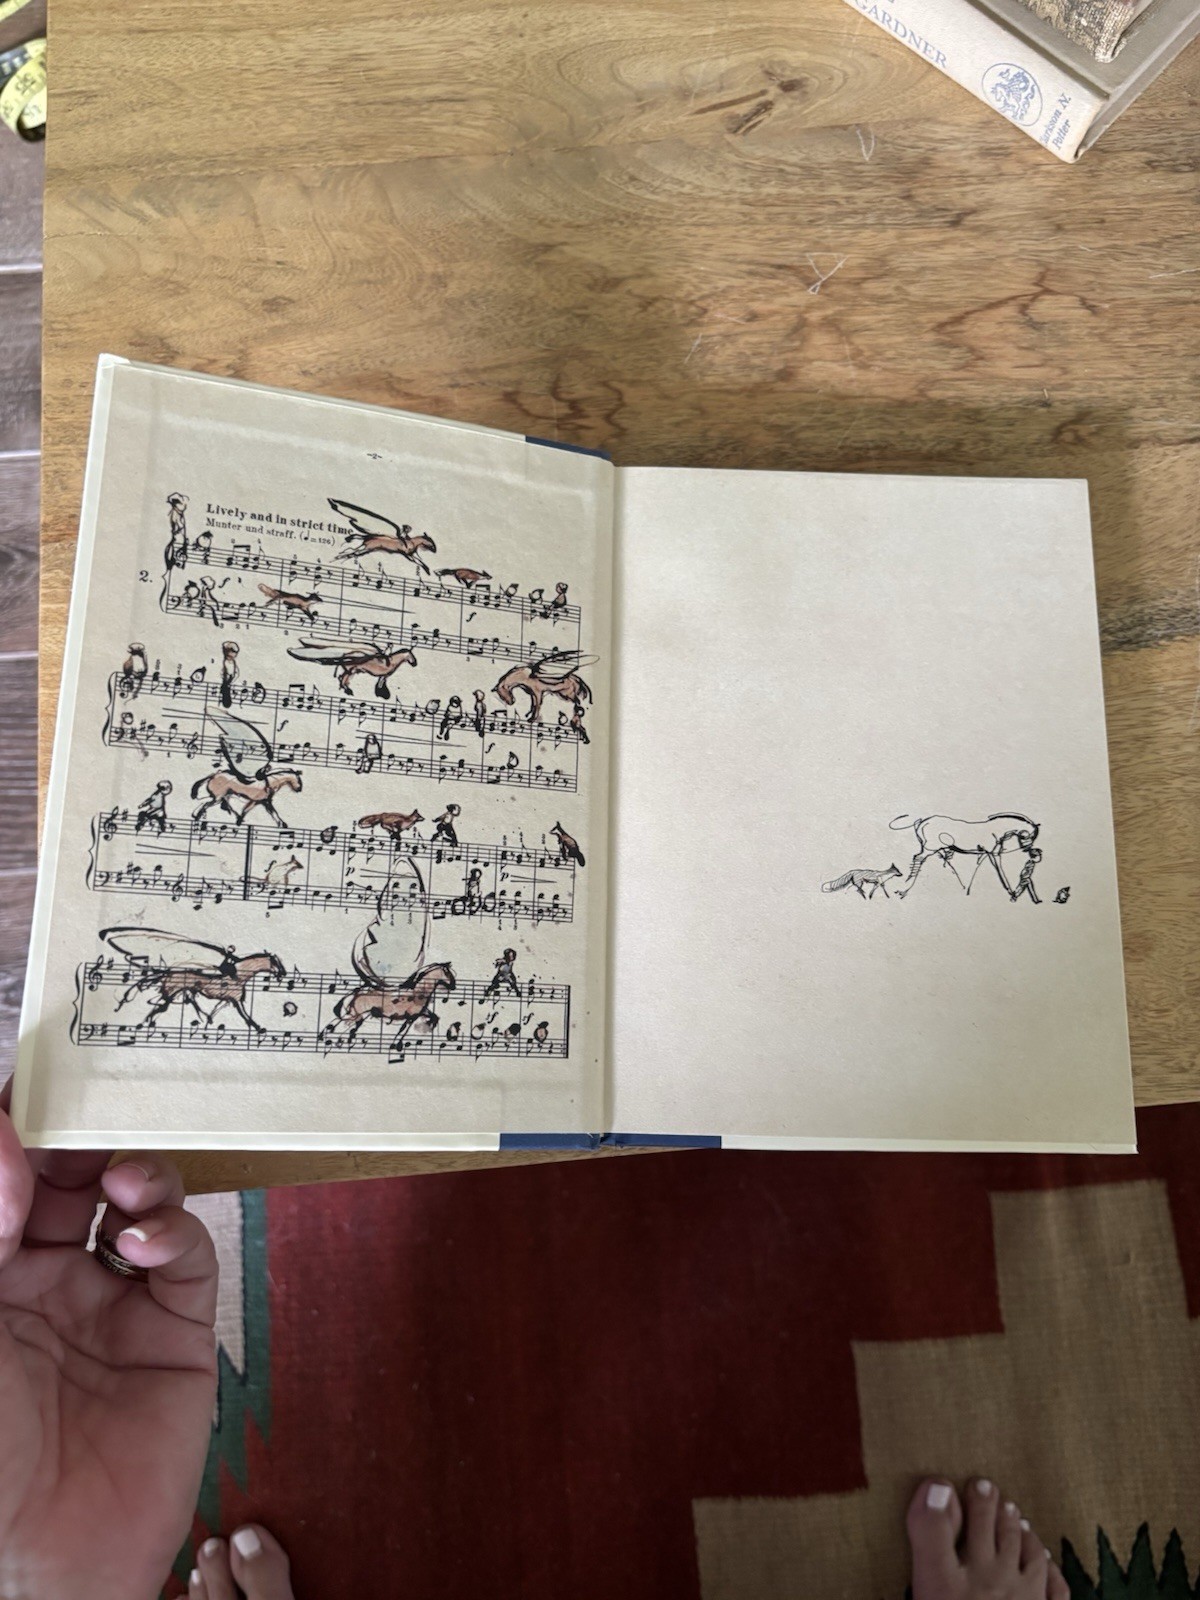 GARDNER
Clarkson N.
Potter
Lively and in strict time
Munter und straff. (♩=126)
2.
f
f
f
f
p
p
sf
sf